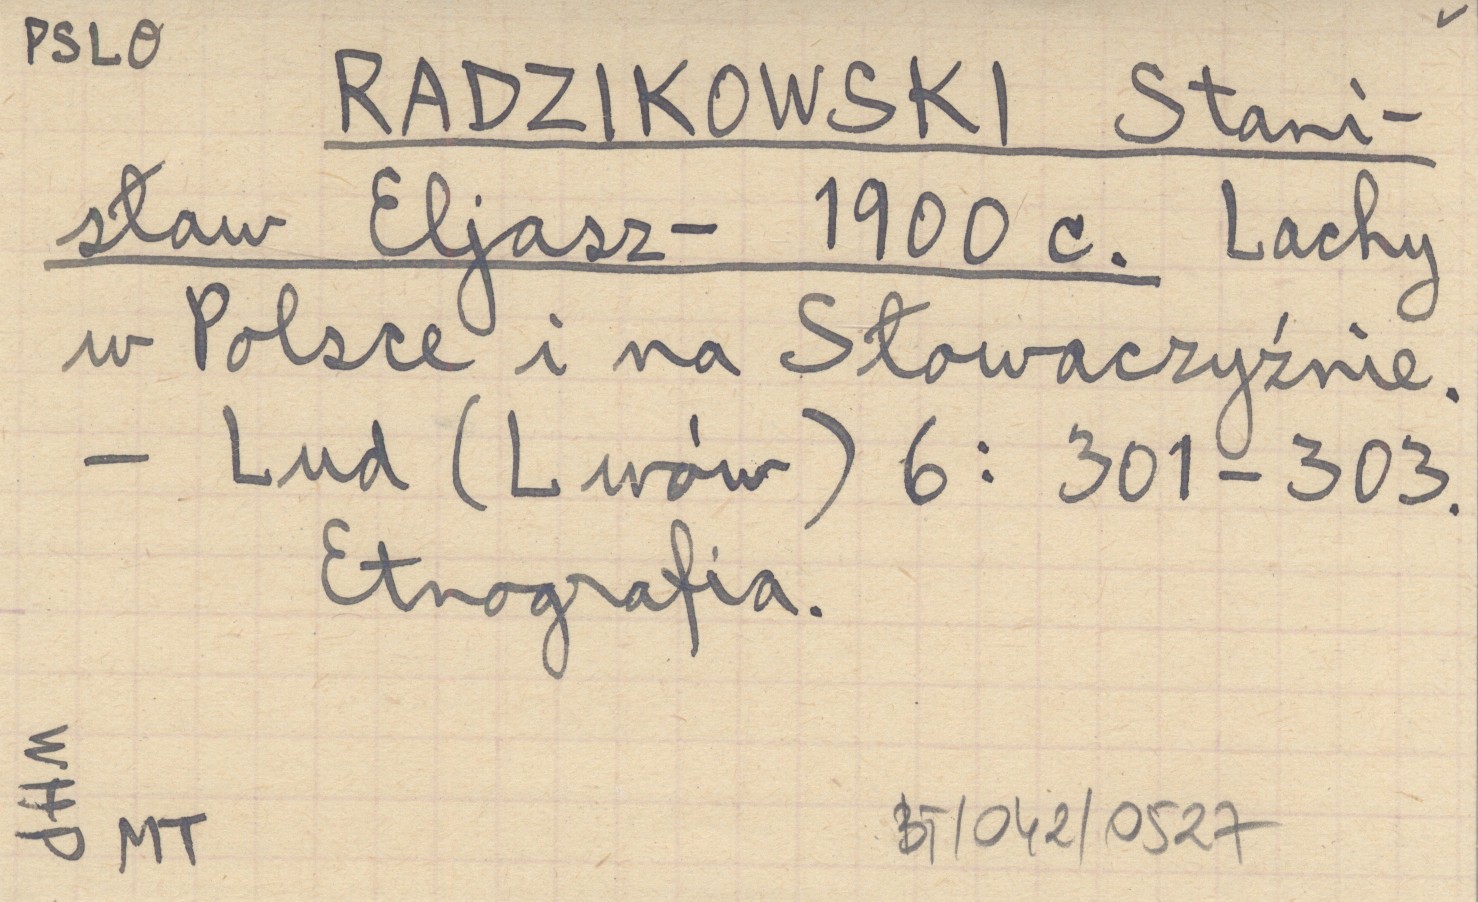 PSLO
RADZIKOWSKI Stani-
sław Eljasz- 1900 c. Lachy
w Polsce i na Słowaczyźnie.
- Lud (Lwów) 6: 301-303.
Etnografia.
WHP
MT
BT/042/0527